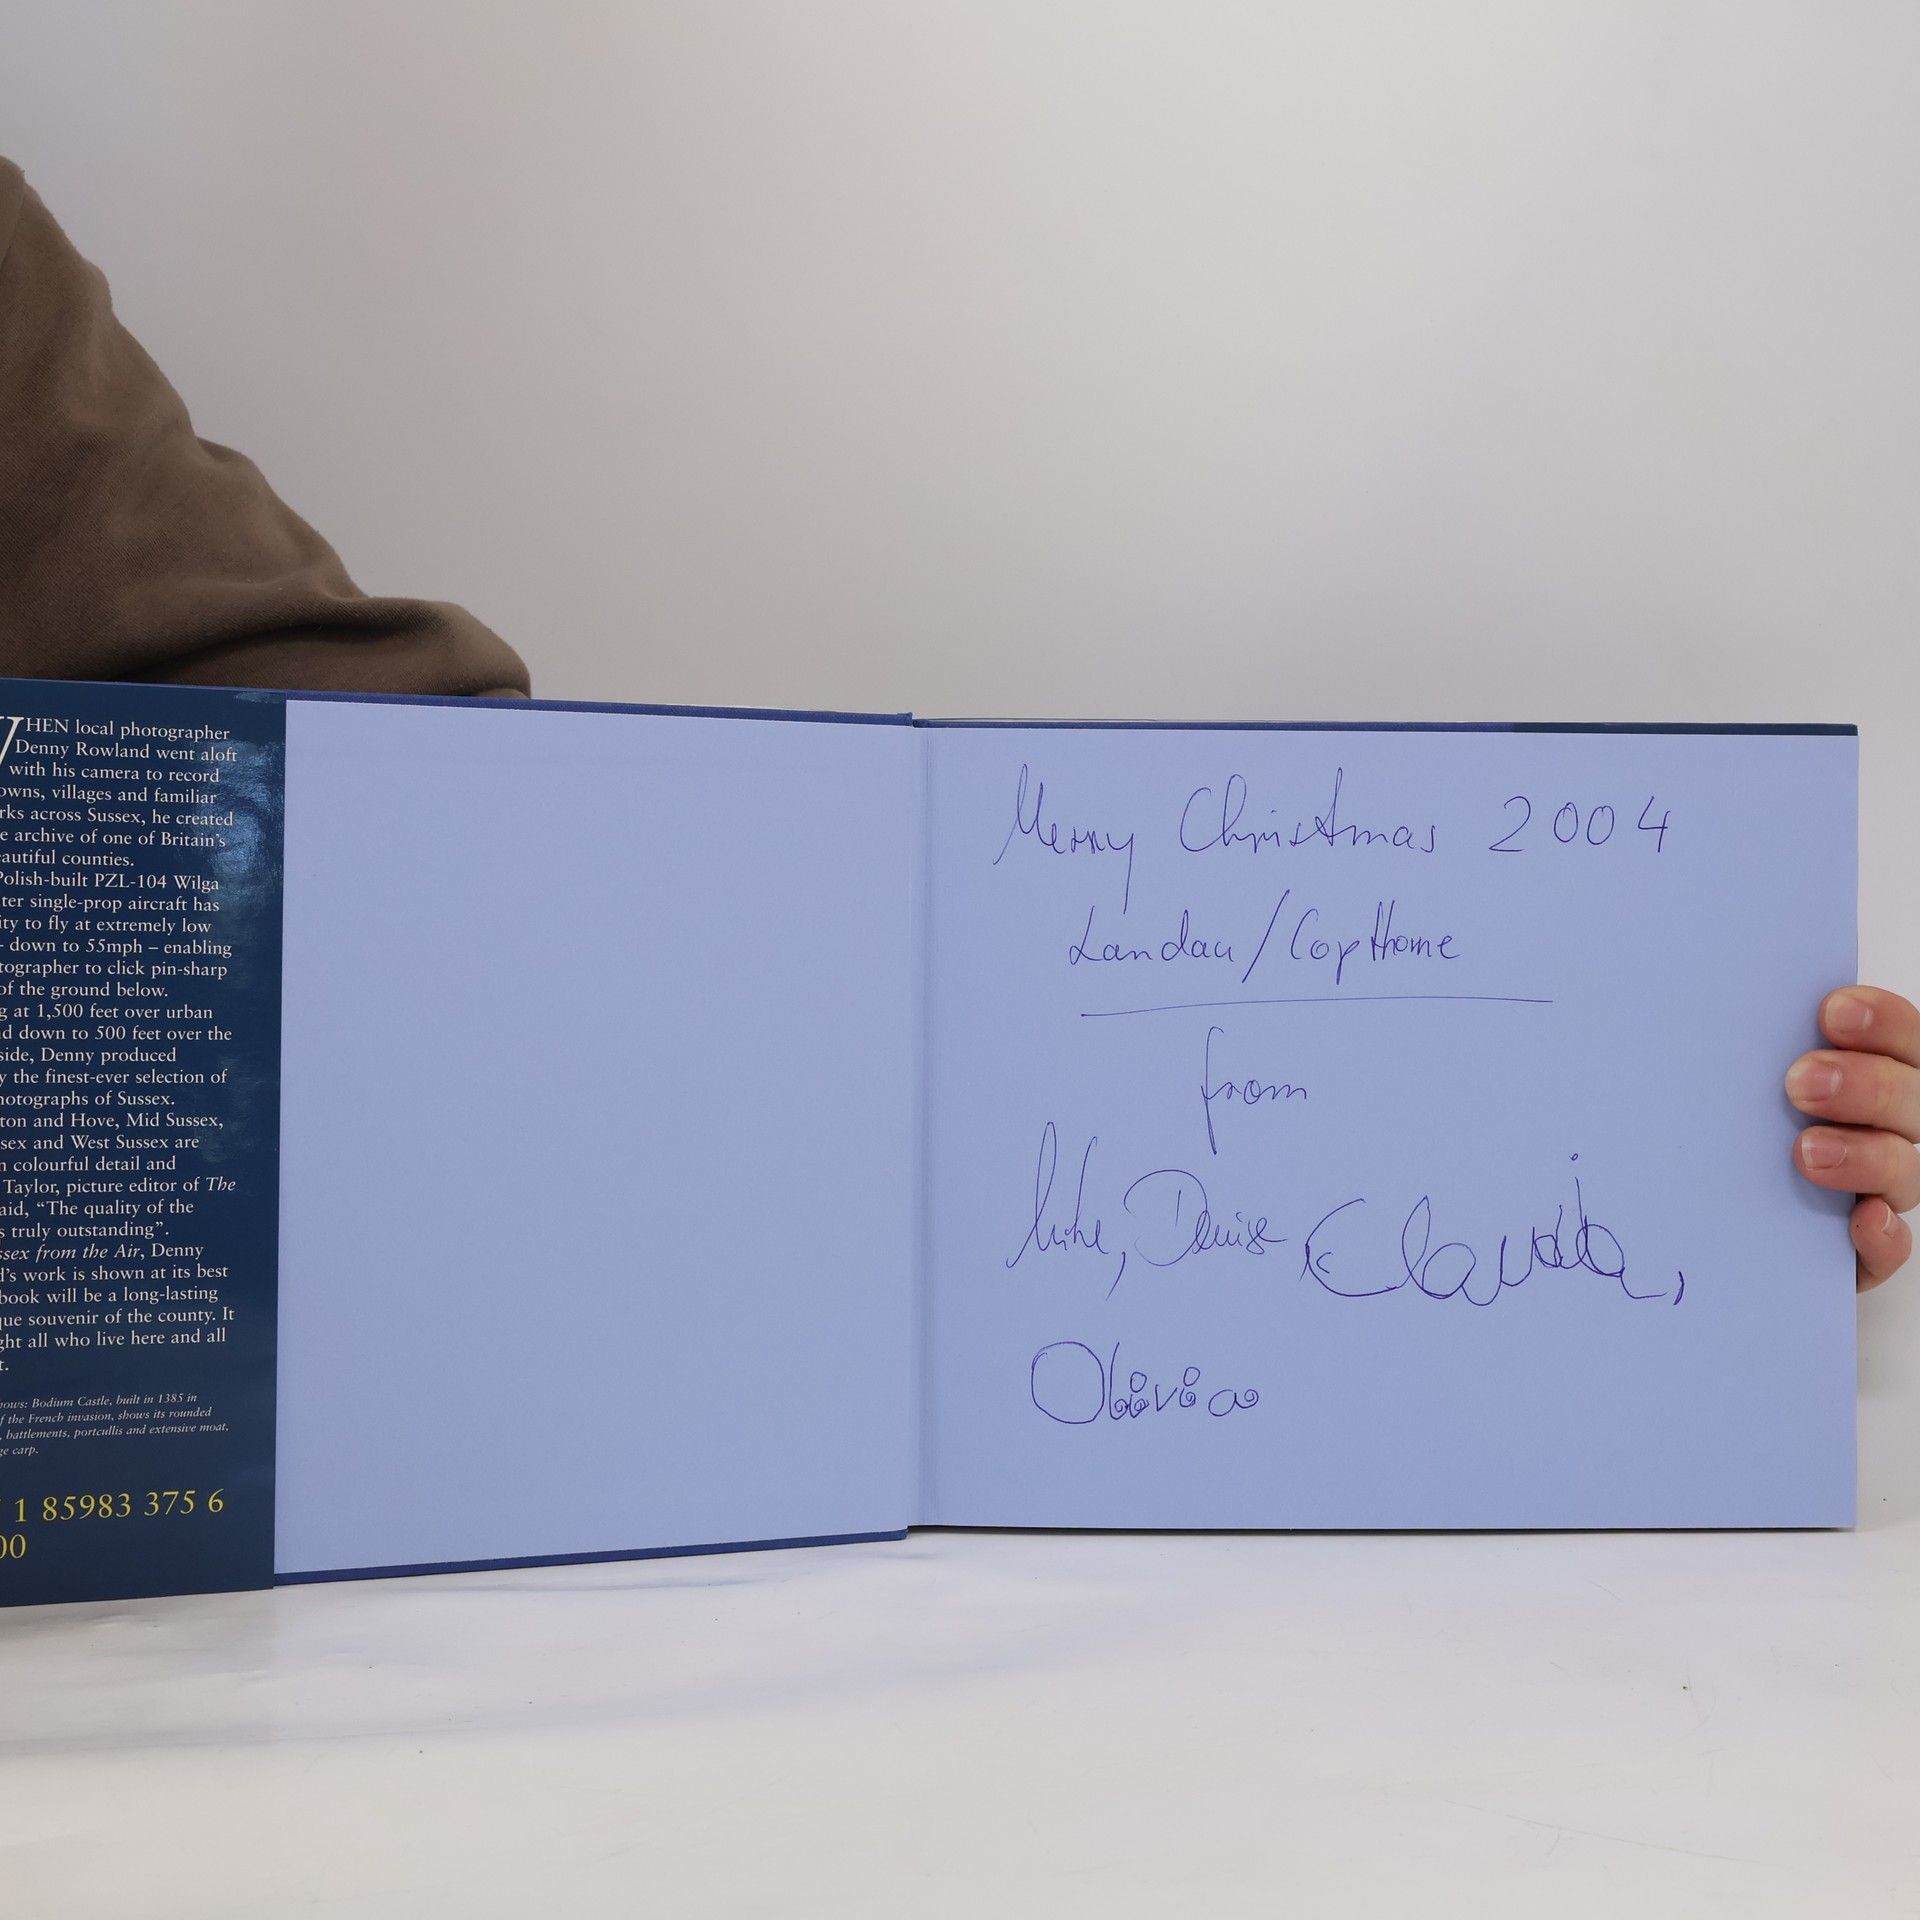 WHEN local photographer
Denny Rowland went aloft
with his camera to record
owns, villages and familiar
rks across Sussex, he created
e archive of one of Britain's
eautiful counties.
Polish-built PZL-104 Wilga
ter single-prop aircraft has
ity to fly at extremely low
- down to 55mph – enabling
tographer to click pin-sharp
of the ground below.
g at 1,500 feet over urban
d down to 500 feet over the
side, Denny produced
y the finest-ever selection of
hotographs of Sussex.
ton and Hove, Mid Sussex,
sex and West Sussex are
n colourful detail and
Taylor, picture editor of The
aid, “The quality of the
s truly outstanding”.
ssex from the Air, Denny
d's work is shown at its best
book will be a long-lasting
que souvenir of the county. It
ght all who live here and all
t.
hows: Bodium Castle, built in 1385 in
f the French invasion, shows its rounded
, battlements, portcullis and extensive moat,
ge carp.
1 85983 375 6
00
Merry Christmas 2004
Landau/Copthorne
from
Mike, Denise Claudia,
Olivia